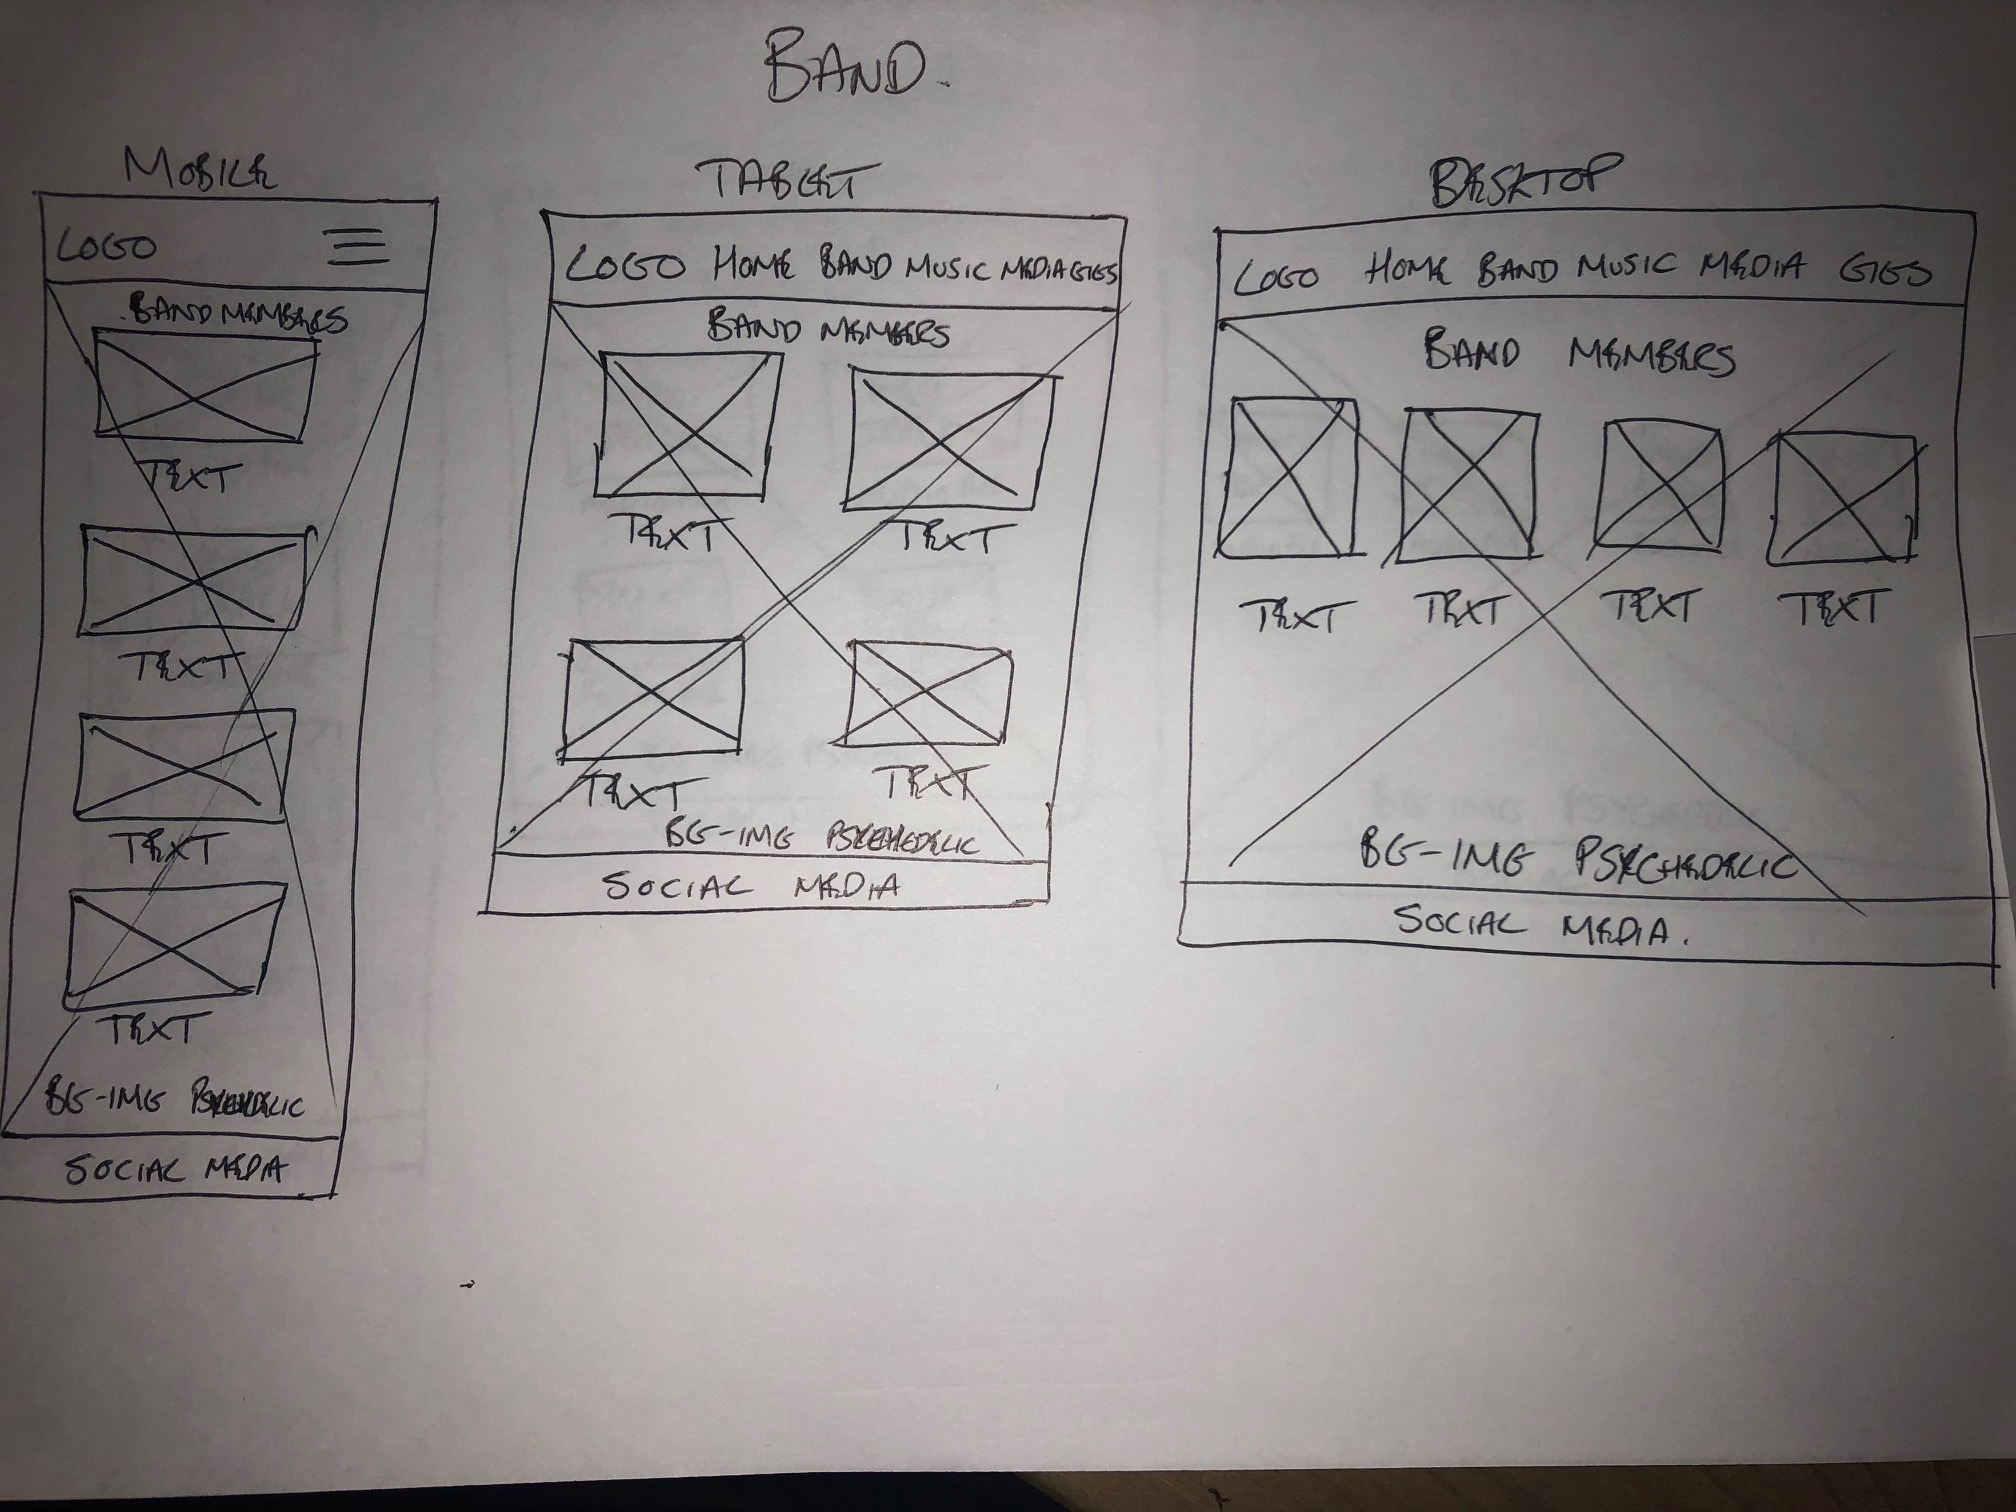 BAND.
MOBILE
LOGO
BAND MEMBERS
TEXT
TEXT
TEXT
TEXT
BG-IMG PSYCHEDELIC
SOCIAL MEDIA
TABLET
LOGO HOME BAND MUSIC MEDIA GIGS
BAND MEMBERS
TEXT TEXT
TEXT TEXT
BG-IMG PSYCHEDELIC
SOCIAL MEDIA
DESKTOP
LOGO HOME BAND MUSIC MEDIA GIGS
BAND MEMBERS
TEXT TEXT TEXT TEXT
BG-IMG PSYCHEDELIC
SOCIAL MEDIA.